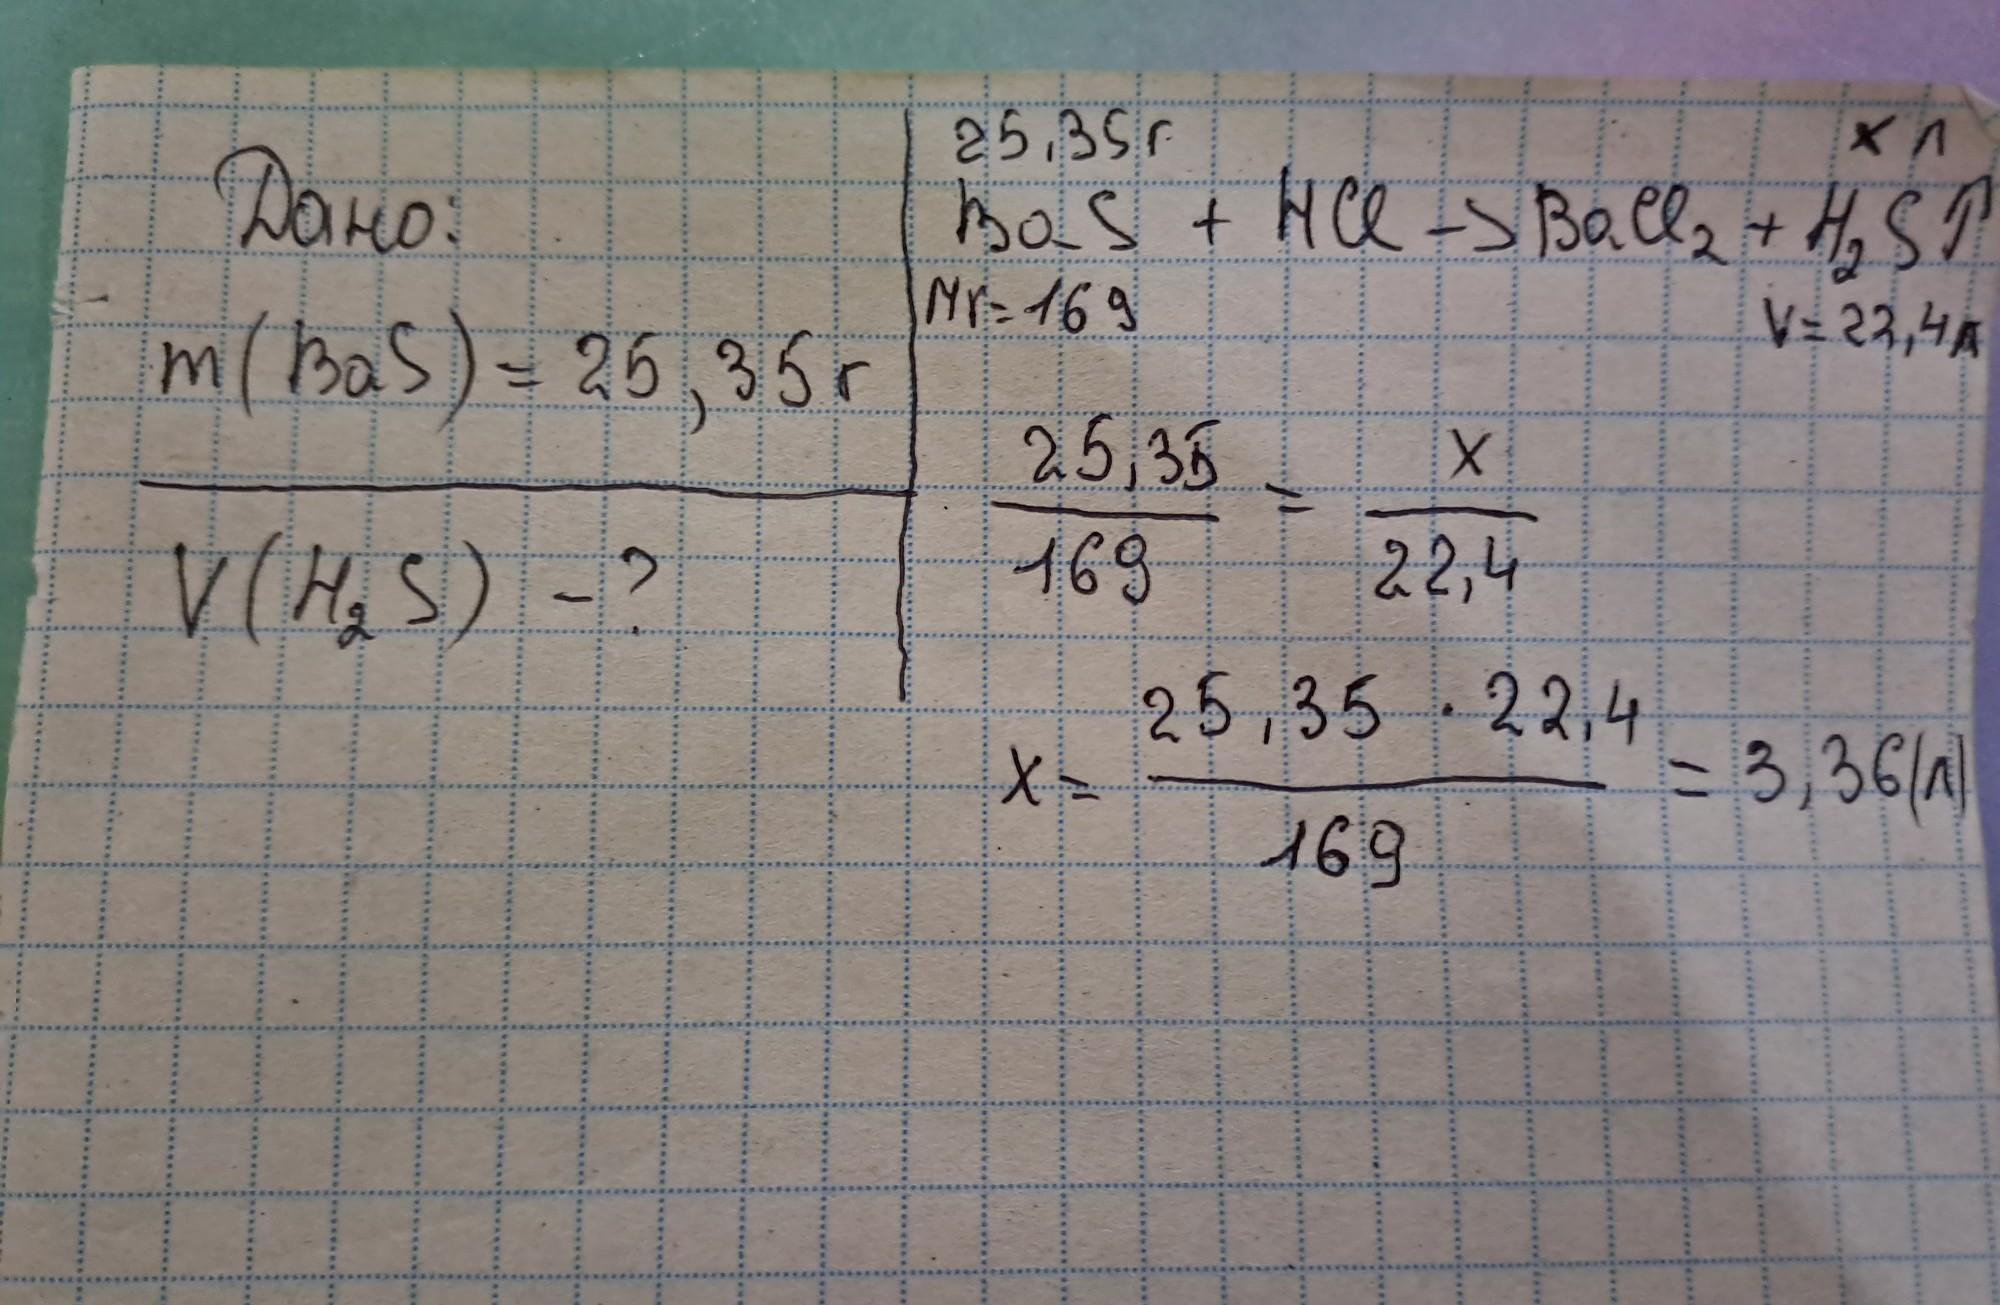 Дано:
m(BaS) = 25,35 г
V(H₂S) - ?
25,35 г x л
BaS + HCl -> BaCl₂ + H₂S↑
Mr = 169 V = 22,4 л
25,35 / 169 = x / 22,4
x = 25,35 · 22,4 / 169 = 3,36 (л)